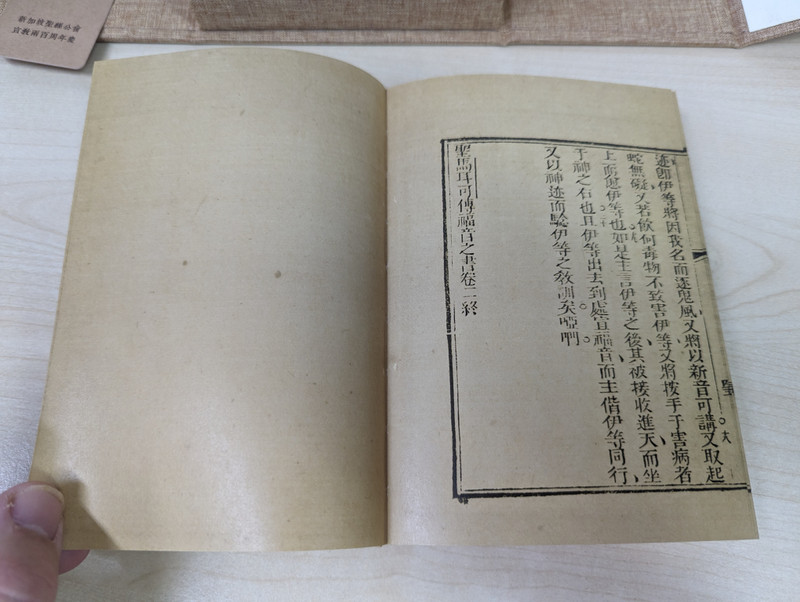 新加坡聖經公會
宣教兩百周年慶
迹即伊等將因我名而逐鬼風又將以新音可講又取起
蛇無礙又若飲何毒物不致害伊等又將按手于害病者
上而愈伊等也如是主言伊等之後其被接收進天而坐
于神之右也且伊等出去到處宣福音而主偕伊等同行
又以神迹而驗伊等之敎訓矣啞𠵽
聖馬耳可傳福音之書卷二終